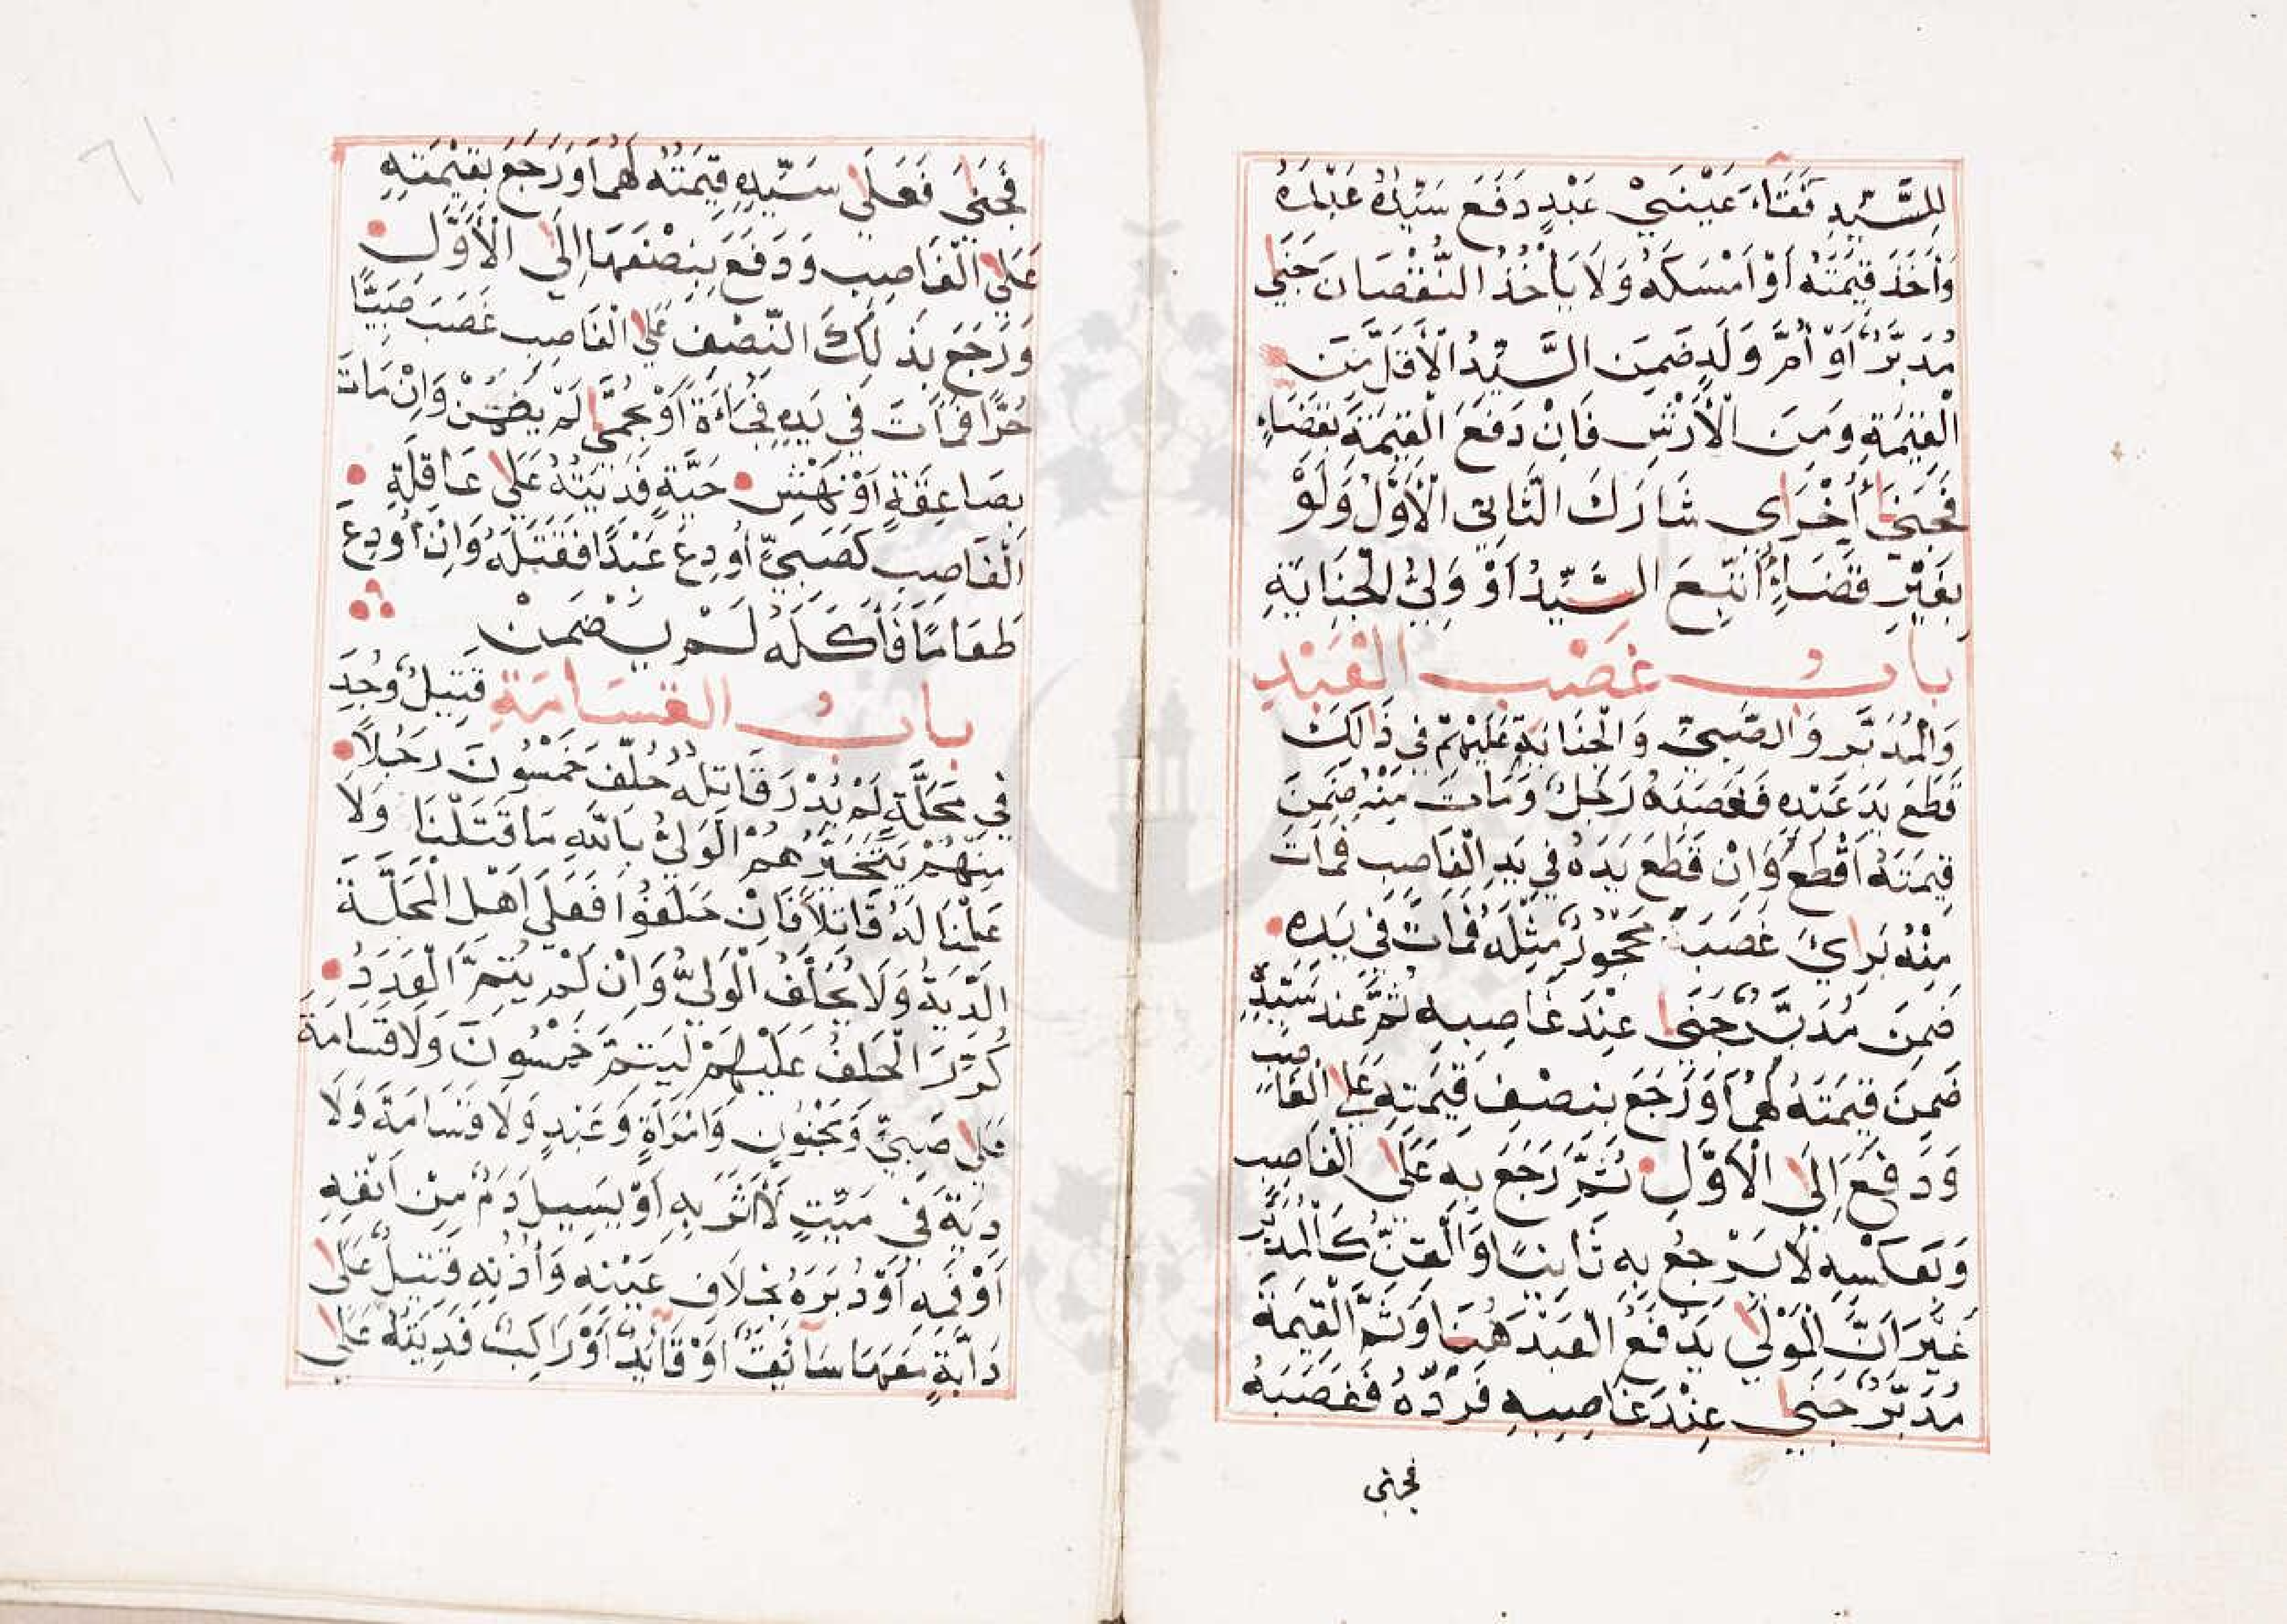 لِلسَّيِّدِ فَقَاءَ عَيْنَيْ عَبْدٍ دَفَعَ سَيِّدُهُ عَبْدَهُ
وَاَخَذَ قِيْمَتَهُ اَوْ اَمْسَكَهُ وَلَا يَأْخُذُ النُّقْصَانَ جَنٰى
مُدَبَّرٌ اَوْ أُمُّ وَلَدٍ ضَمِنَ السَّيِّدُ الْأَقَلَّ مِنَ
الْقِيْمَةِ وَمِنَ الْأَرْشِ فَاِنْ دَفَعَ الْقِيْمَةَ بِقَضَاءٍ
فَجَنٰى أُخْرٰى شَارَكَ الثَّانِي الْأَوَّلَ وَلَوْ
بِغَيْرِ قَضَاءٍ اُتُّبِعَ السَّيِّدُ اَوْ وَلِيُّ الْجِنَايَةِ
بابُ غَصْبِ الْعَبْدِ
وَالْمُدَبَّرِ وَالصَّبِيِّ وَالْجِنَايَةِ عَلَيْهِمْ فِي ذَالِكَ
قَطَعَ يَدَ عَبْدِهِ فَغَصَبَهُ رَجُلٌ وَمَاتَ مِنْهُ ضَمِنَ
قِيمَتَهُ اَقْطَعَ وَاِنْ قَطَعَ يَدَهُ فِي يَدِ الْغَاصِبِ فَمَاتَ
مِنْهُ بَرِاىَٔ غَصَبَ مَحْجُورٌ مِثْلَهُ فَمَاتَ فِي يَدِهِ
ضَمِنَ مُدَبَّرٌ جَنٰى عِنْدَ غَاصِبِهِ ثُمَّ عِنْدَ سَيِّدِهِ
ضَمِنَ قِيْمَتَهُ لَهُمَا وَرَجَعَ بِنِصْفِ قِيْمَتِهِ عَلَى الْغَاصِبِ
وَدَفَعَ اِلَى الْاَوَّلِ ثُمَّ رَجَعَ بِهِ عَلَى الْغَاصِبِ
وَبِعَكْسِهِ لَا يَرْجِعُ بِهِ ثَانِيًا وَالْقِنُّ كَالْمُدَبَّرِ
غَيْرَ اَنَّ الْمَوْلٰى يَدْفَعُ الْعَبْدَ هُنَا وَثَمَّ الْقِيْمَةَ
مُدَبَّرٌ جَنٰى عِنْدَ غَاصِبِهِ فَرَدَّهُ فَغَصَبَهُ
فجنى
فَجَنٰى فَعَلٰى سَيِّدِهِ قِيْمَتُهُ لَهُمَا وَرَجَعَ بِقِيْمَتِهِ
عَلَى الْغَاصِبِ وَدَفَعَ بِنِصْفِهَا اِلَى الْأَوَّلِ
وَرَجَعَ بِذٰلِكَ النِّصْفِ عَلَى الْغَاصِبِ غَصَبَ صَبِيًّا
حُرًّا فَمَاتَ فِي يَدِهِ فَجَاءَةً اَوْ بِحُمّٰى لَمْ يَضْمَنْ وَاِنْ مَاتَ
بِصَاعِقَةٍ اَوْ نَهْشِ حَيَّةٍ فَدِيَتُهُ عَلٰى عَاقِلَةِ
الْغَاصِبِ كَصَبِيٍّ أُودِعَ عَبْدًا فَقَتَلَهُ وَاِنْ أُودِعَ
طَعَامًا فَأَكَلَهُ لَمْ يَضْمَنْ
بابُ القَسَامَةِ قَتِيلٌ وُجِدَ
فِي مَحَلَّةٍ لَمْ يُدْرَ قَاتِلُهُ حُلِّفَ خَمْسُونَ رَجُلاً
مِنْهُمْ يَتَخَيَّرُهُمْ الْوَلِيُّ بِاللّٰهِ مَا قَتَلْنَا وَلَا
عَلِمْنَا لَهُ قَاتِلاً فَاِنْ حَلَفُوْا فَعَلَى اَهْلِ الْمَحَلَّةِ
الدِّيَةُ وَلَا يُحَلَّفُ الْوَلِيُّ وَاِنْ لَمْ يُتِمَّ الْعَدَدُ
كُرِّرَ الْحَلِفُ عَلَيْهِمْ لِيَتِمَّ خَمْسُونَ وَلَا قَسَامَةَ
عَلٰى صَبِيٍّ وَمَجْنُونٍ وَامْرَاَةٍ وَعَبْدٍ وَلَا قَسَامَةَ وَلَا
دِيَةَ فِي مَيِّتٍ لَا اَثَرَ بِهِ اَوْ يَسِيلُ دَمٌ مِنْ اَنْفِهِ
اَوْ فَمِهِ اَوْ دُبُرِهُ بِخِلَافِ عَيْنِهِ وَأُذُنِهِ قَتِيلٌ عَلٰى
دَابَّةٍ مَعَهَا سَائِقٌ اَوْ قَائِدٌ اَوْ رَاكِبٌ فَدِيَتُهُ عَلٰى